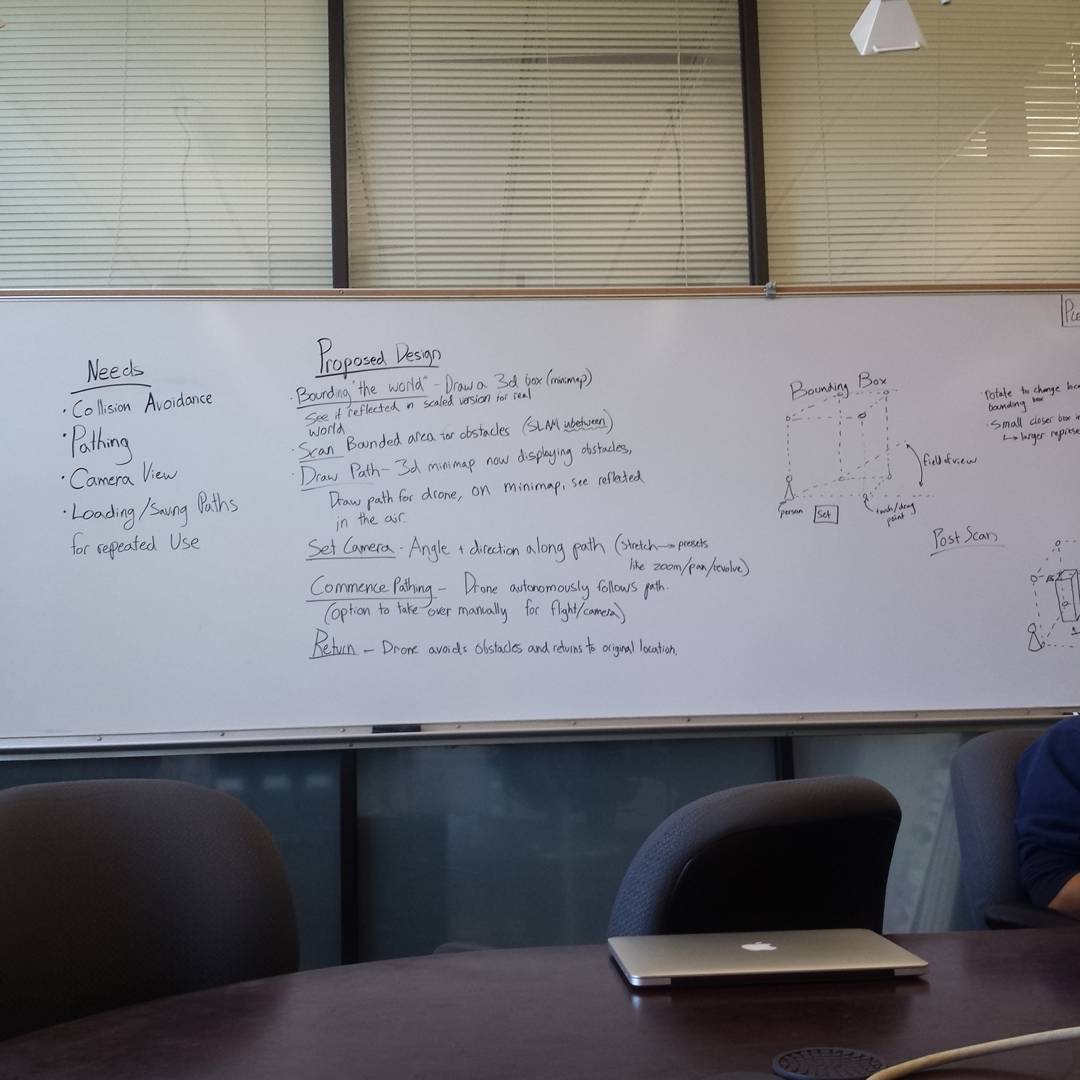 Needs
· Collision Avoidance
· Pathing
· Camera View
· Loading/Saving Paths
for repeated Use
Proposed Design
· Bounding "the world" - Draw a 3d box (minimap)
See it reflected in scaled version for real
world
· Scan Bounded area for obstacles (SLAM inbetween)
· Draw Path - 3d minimap now displaying obstacles,
Draw path for drone, on minimap, see reflected
in the air.
Set Camera - Angle + direction along path (Stretch → presets
like zoom/pan/revolve)
Commence Pathing - Drone autonomously follows path.
(option to take over manually for flight/camera)
Return - Drone avoids obstacles and returns to original location.
Bounding Box
field of view
person
Set
touch/drag
point
rotate to change
bounding box
· Small closer box
↳ larger
Post Scan